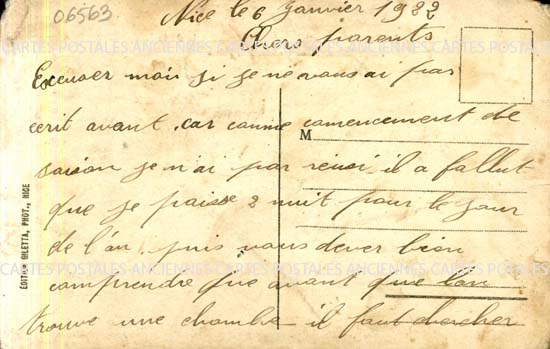 06563
Nice le 6 Janvier 1922
Chers parents
Excuser moi si je ne vous ai pas
ecrit avant car comme comencement de
M
saison je n'ai pas reussi il a fallut
que je passe 2 nuit pour le jour
de l'an puis vous dever bien
comprendre que avant que l'on
trouve une chambre il faut chercher
ÉDITION GILETTA, PHOT., NICE
CARTES POSTALES ANCIENNES CARTES POSTALES ANCIENNES
CARTES POSTALES ANCIENNES CARTES POSTALES ANCIENNES
CARTES POSTALES ANCIENNES CARTES POSTALES ANCIENNES